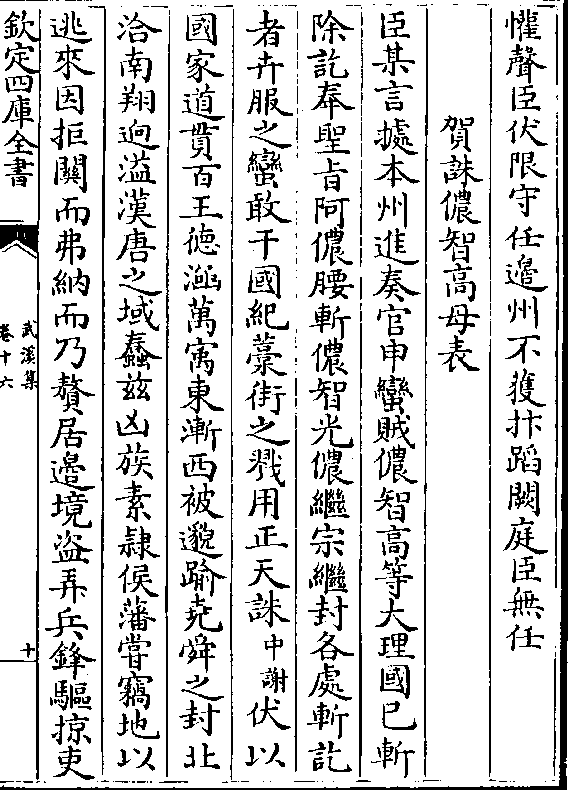 懽聲臣伏限守任邉州不獲抃蹈闕庭臣無任
賀誅儂智高母表
臣某言據本州進奏官申蠻賊儂智高等大理國已斬
除訖奉聖旨阿儂腰斬儂智光儂繼宗繼封各處斬訖
者卉服之蠻敢干國紀藁街之戮用正天誅中謝伏以
國家道貫百王德涵萬寓東漸西被邈踰堯舜之封北
洽南翔逈溢漢唐之域蠢兹凶族素隷侯藩嘗竊地以
逃來因拒關而弗納而乃贅居邉境盗弄兵鋒驅掠吏
欽定四庫全書
武溪集
卷十六
十